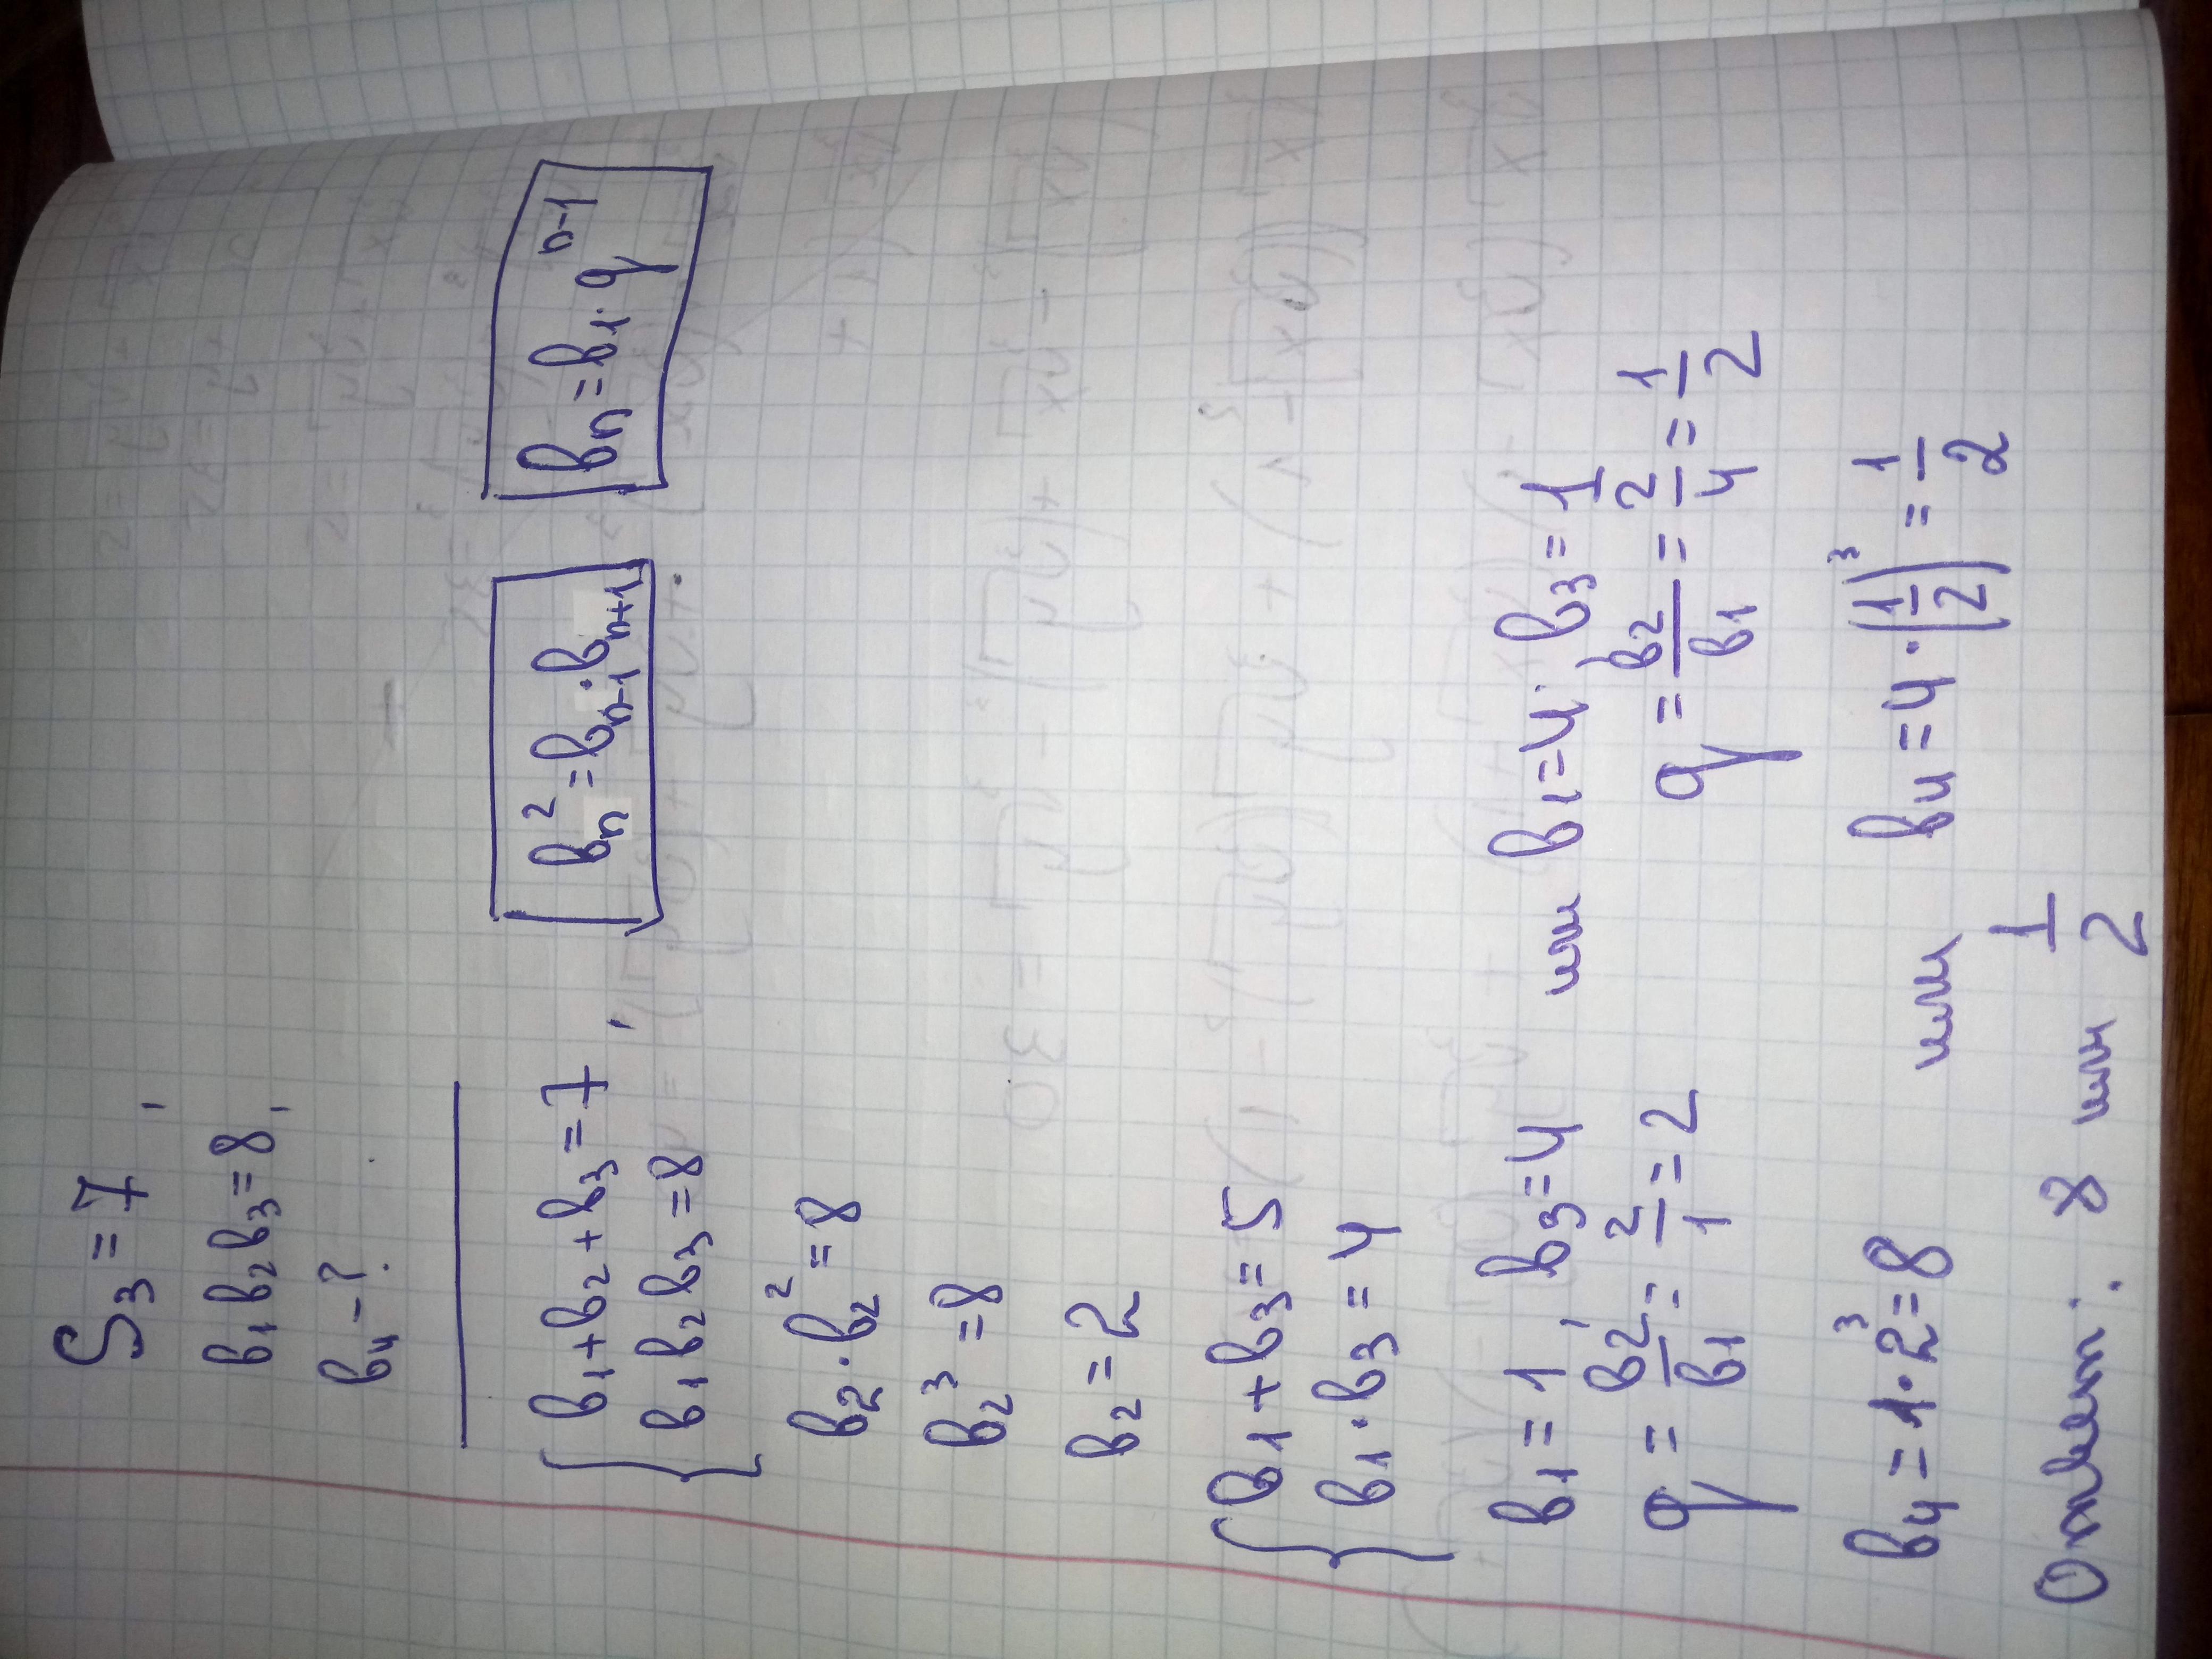 S₃ = 7,
b₁b₂b₃ = 8,
b₄ - ?
{ b₁ + b₂ + b₃ = 7,
b₁b₂b₃ = 8
bₙ² = bₙ₋₁ · bₙ₊₁
bₙ = b₁ · qⁿ⁻¹
b₂ · b₂² = 8
b₂³ = 8
b₂ = 2
{ b₁ + b₃ = 5
b₁ · b₃ = 4
b₁ = 1, b₃ = 4 или b₁ = 4; b₃ = 1
q = b₂/b₁ = 2/1 = 2 q = b₂/b₁ = 2/4 = 1/2
b₄ = 1 · 2³ = 8 или b₄ = 4 · (1/2)³ = 1/2
Ответ: 8 или 1/2